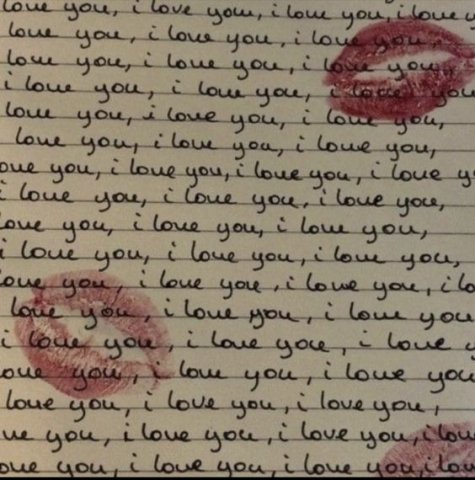 love you, i love you, i love you, i love
love you, i love you, i love you
love you, i love you, i love you,
i love you, i love you, i love you
love you, i love you, i love you,
love you, i love you, i love you,
ove you, i love you, i love you, i love y
i love you, i love you, i love you,
love you, i love you, i love you,
i love you, i love you, i love you,
love you, i love you, i love you, i lo
love you, i love you, i love you
i love you, i love you, i love y
ove you, i love you, i love you
love you, i love you, i love you,
ve you, i love you, i love you, i love
ove you, i love you, i love you, i love